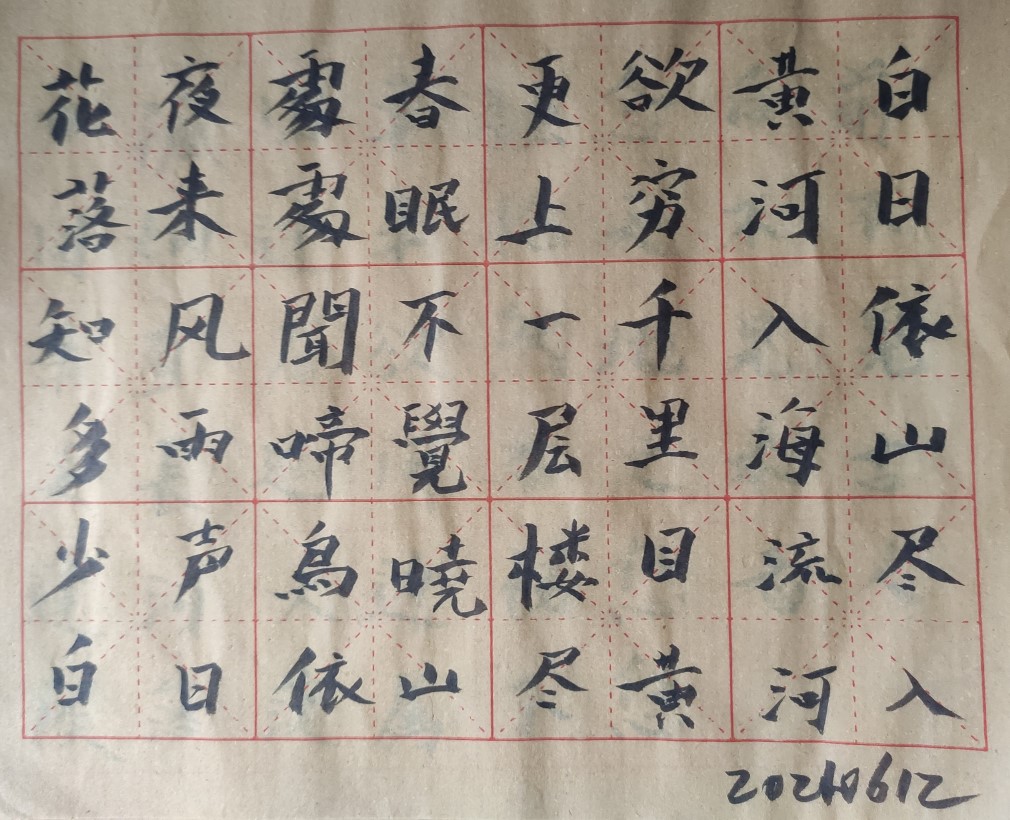 白日依山尽
黄河入海流
欲穷千里目
更上一层楼
春眠不覺暁
處處聞啼鳥
夜来风雨声
花落知多少
白日依山尽黄河入
20210612